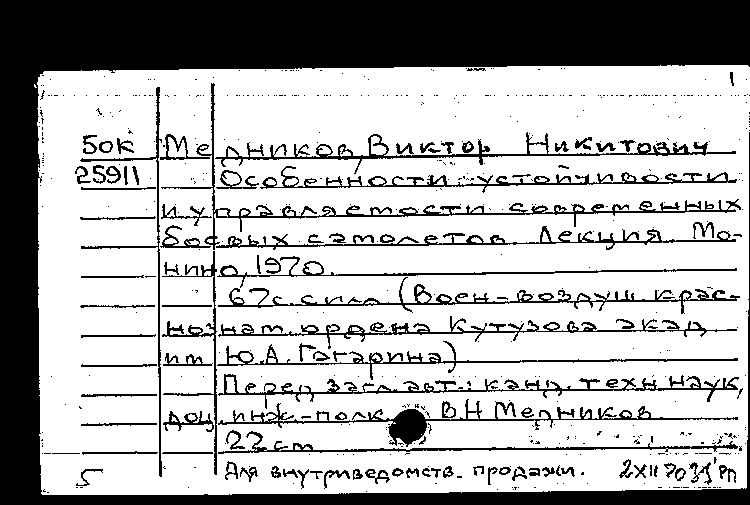 1
5ок Медников, Виктор Никитович
25911 Особенности устойчивости
и управляемости современных
боевых самолетов. Лекция. Мо-
нино, 1970.
67с. с илл (Воен-воздуш. крас-
нознам. ордена Кутузова акад
им Ю.А. Гагарина)
Перед загл. авт.: канд. техн наук,
доц. инж-полк В.Н Медников.
22 см
5 Для внутриведомств. продажи. 2 XII 70